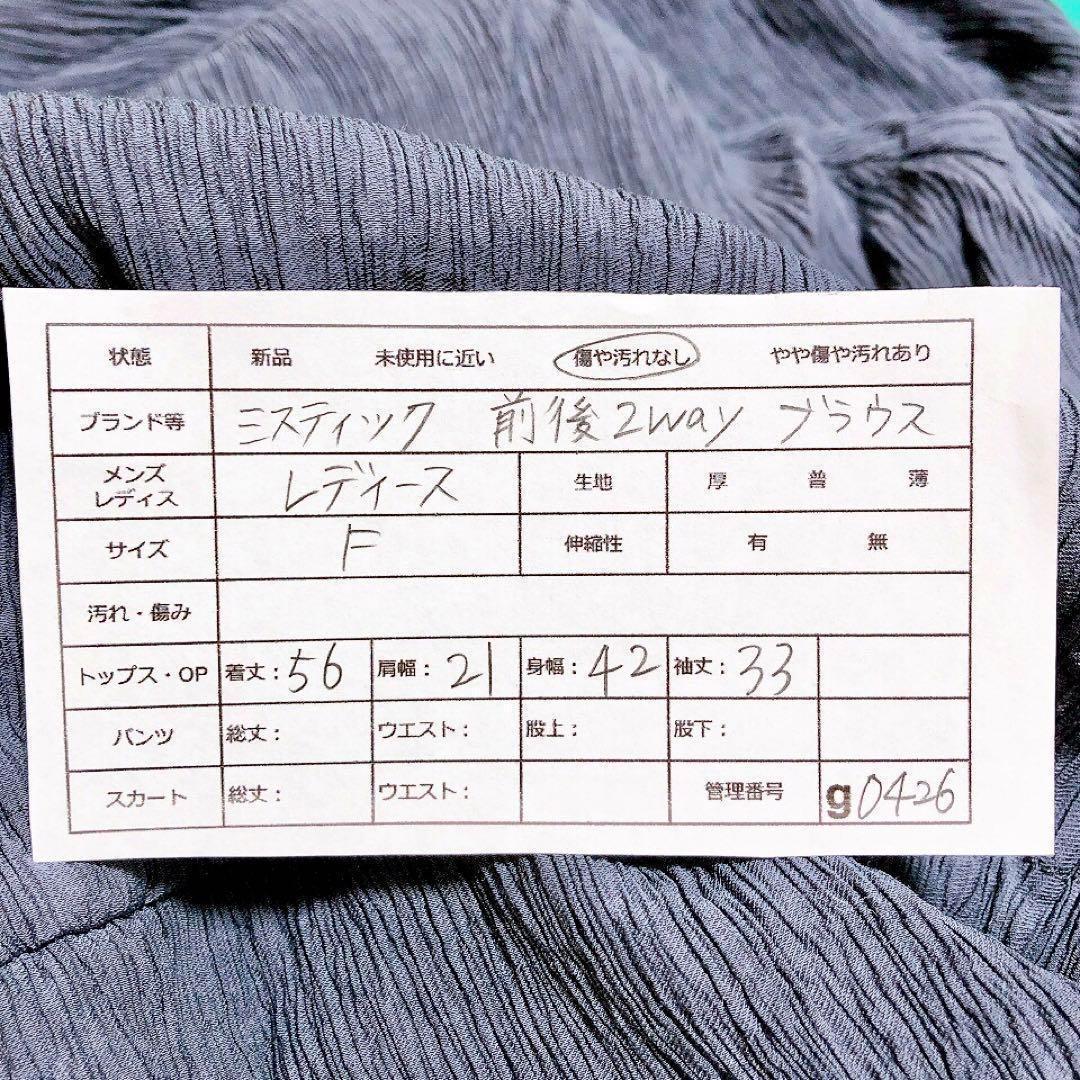 状態 新品 未使用に近い 傷や汚れなし やや傷や汚れあり
ブランド等 ミスティック 前後2way ブラウス
メンズ
レディス レディース 生地 厚 普 薄
サイズ F 伸縮性 有 無
汚れ・傷み
トップス・OP 着丈：56 肩幅：21 身幅：42 袖丈：33
パンツ 総丈： ウエスト： 股上： 股下：
スカート 総丈： ウエスト： 管理番号 g0426